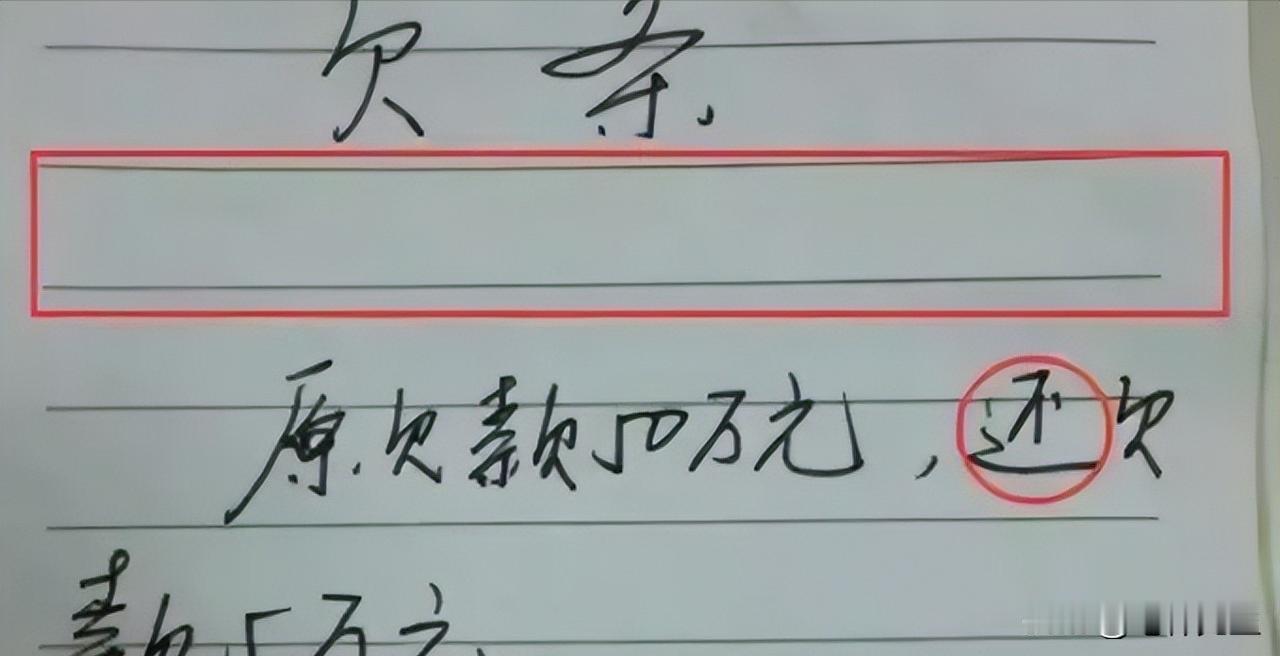 欠条
原欠款50万元,还欠
款5万元